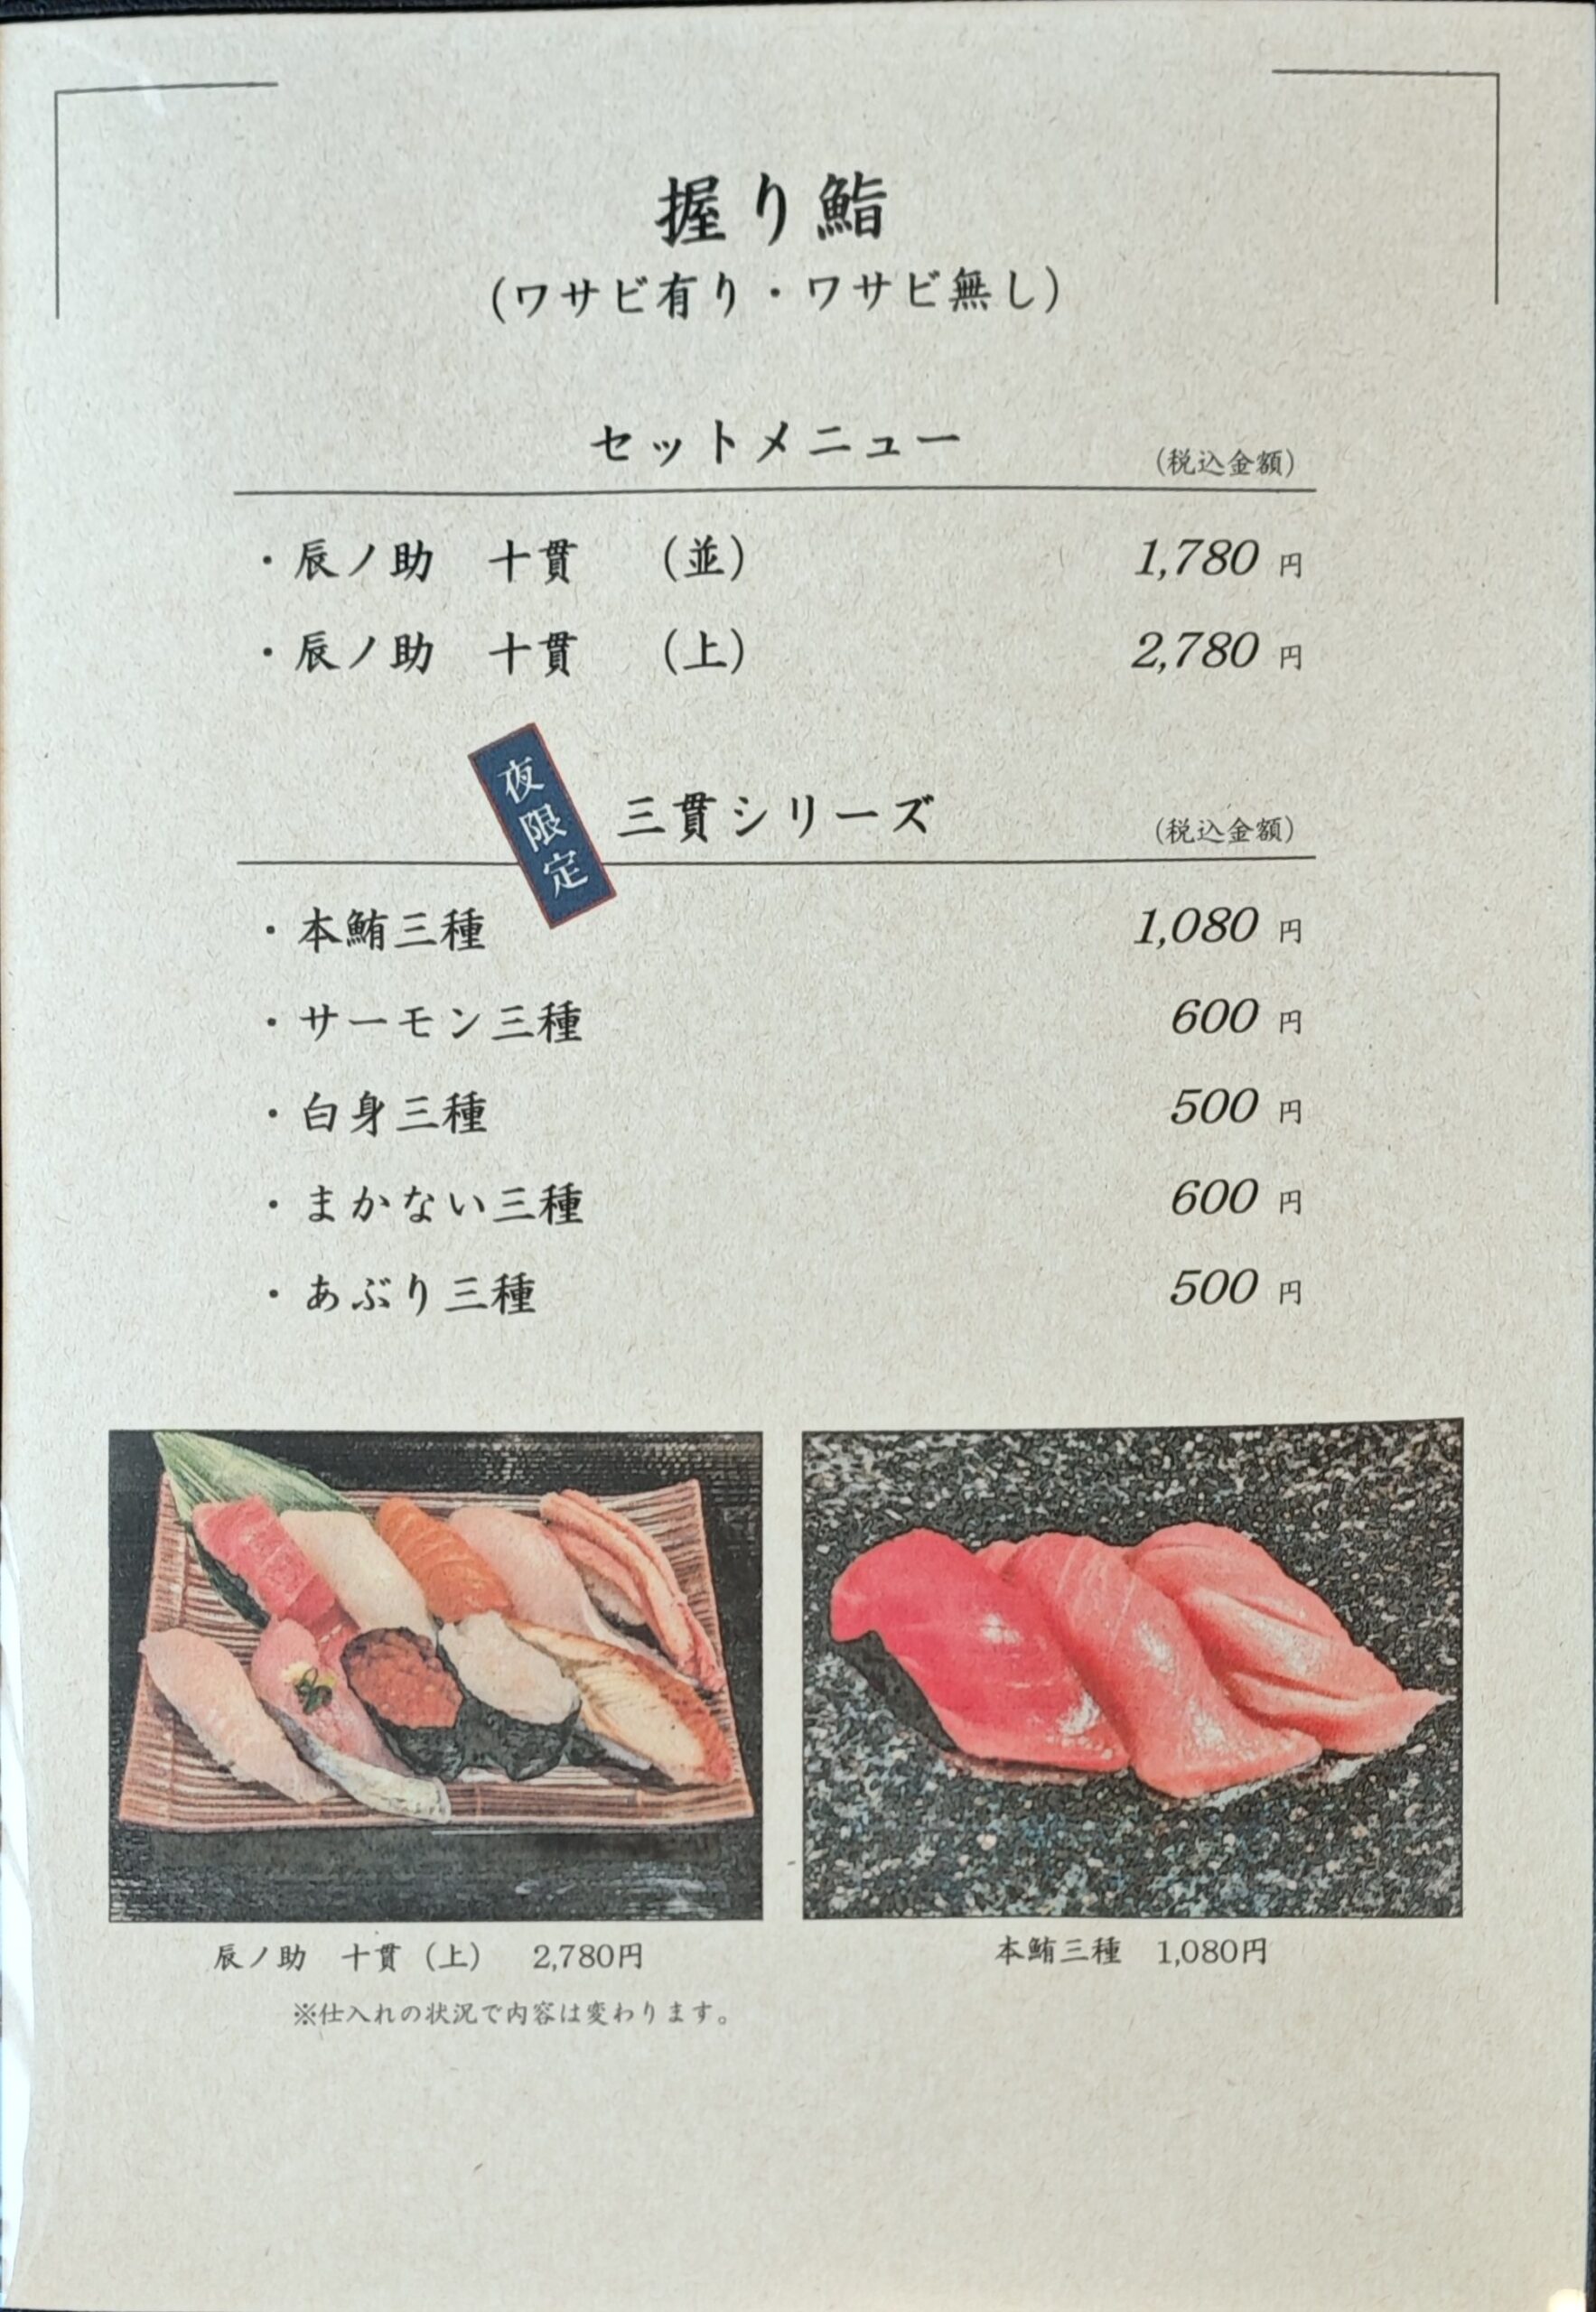 握り鮨
（ワサビ有り・ワサビ無し）
セットメニュー （税込金額）
・辰ノ助 十貫 （並） 1,780 円
・辰ノ助 十貫 （上） 2,780 円
夜限定
三貫シリーズ （税込金額）
・本鮪三種 1,080 円
・サーモン三種 600 円
・白身三種 500 円
・まかない三種 600 円
・あぶり三種 500 円
辰ノ助 十貫（上） 2,780円
※仕入れの状況で内容は変わります。
本鮪三種 1,080円